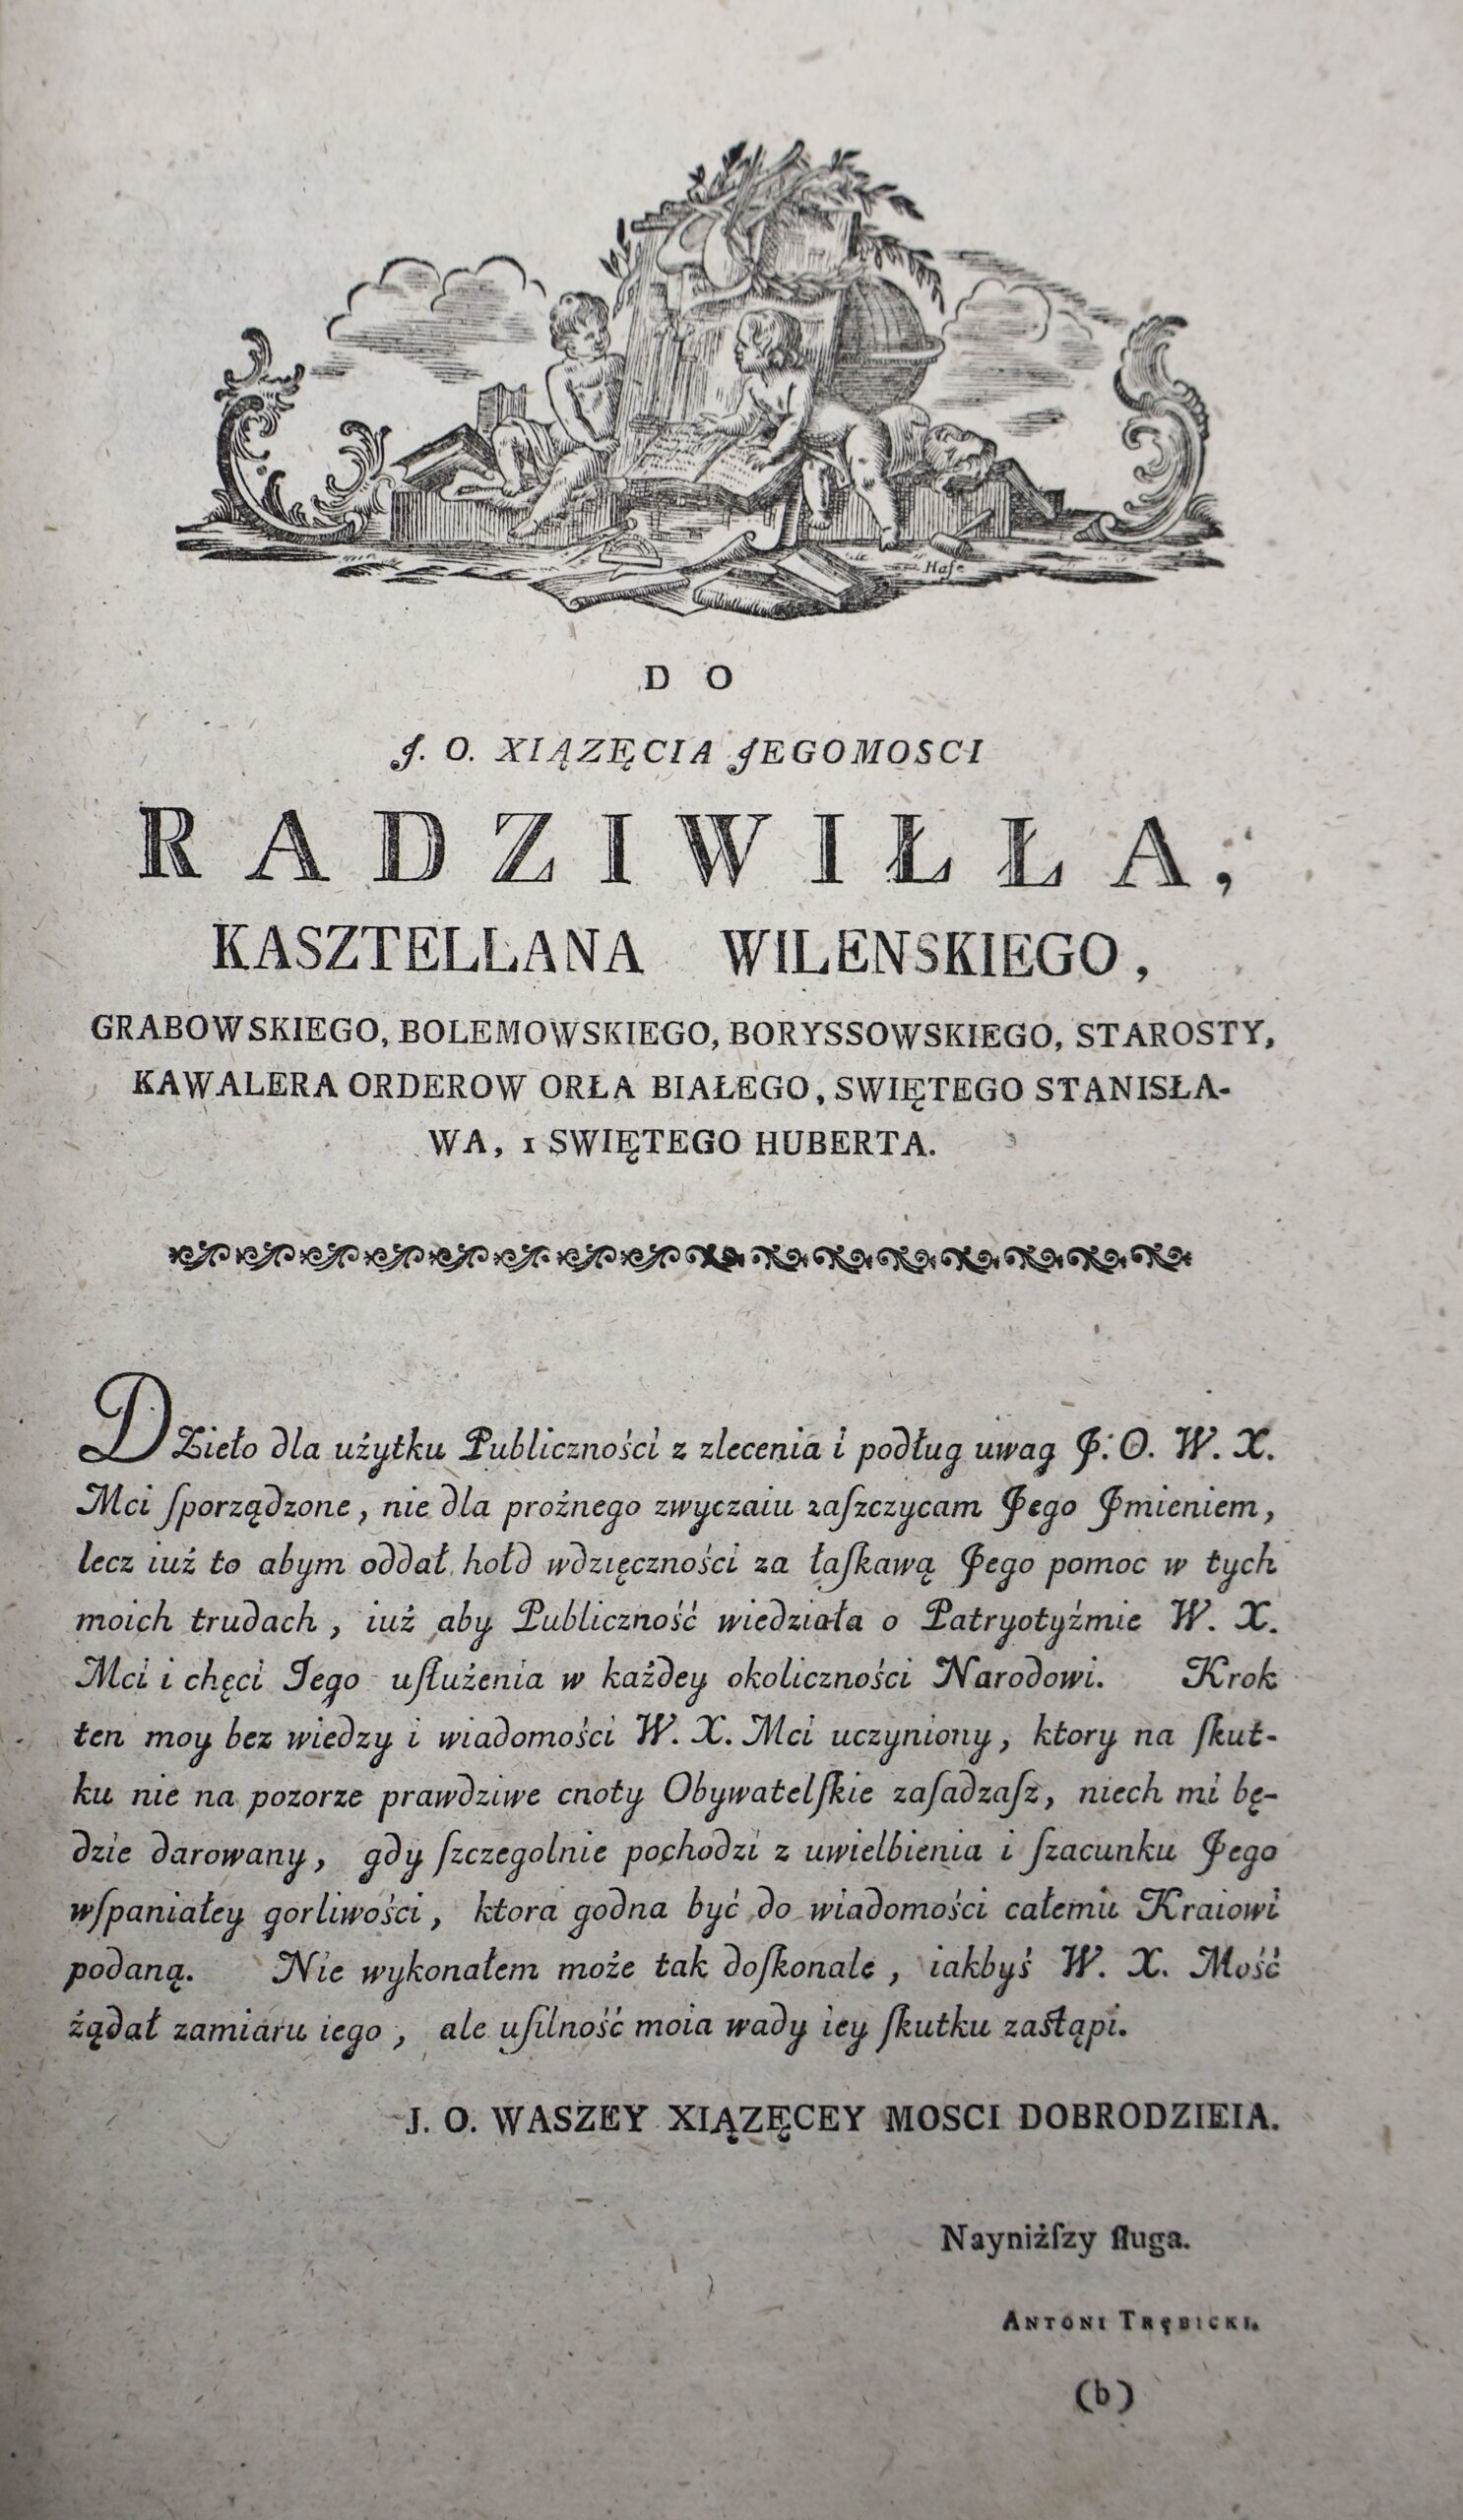 Hafe
D O
J. O. XIĄZĘCIA JEGOMOSCI
RADZIWIŁŁA,
KASZTELLANA WILENSKIEGO,
GRABOWSKIEGO, BOLEMOWSKIEGO, BORYSSOWSKIEGO, STAROSTY,
KAWALERA ORDEROW ORŁA BIAŁEGO, SWIĘTEGO STANISŁA-
WA, I SWIĘTEGO HUBERTA.
DZieło dla użytku Publiczności z zlecenia i podług uwag J. O. W. X.
Mci ſporządzone, nie dla proźnego zwyczaiu zaſzczycam Jego Jmieniem,
lecz iuż to abym oddał hołd wdzięczności za łaſkawą Jego pomoc w tych
moich trudach, iuż aby Publiczność wiedziała o Patryotyźmie W. X.
Mci i chęci Jego uſłużenia w każdey okoliczności Narodowi. Krok
ten moy bez wiedzy i wiadomości W. X. Mci uczyniony, ktory na ſkut-
ku nie na pozorze prawdziwe cnoty Obywatelſkie zaſadzaſz, niech mi bę-
dzie darowany, gdy ſzczegolnie pochodzi z uwielbienia i ſzacunku Jego
wſpaniałey gorliwości, ktora godna być do wiadomości całemu Kraiowi
podaną. Nie wykonałem może tak doſkonale, iakbyś W. X. Mość
żądał zamiaru iego, ale uſilność moia wady iey ſkutku zaſtąpi.
J. O. WASZEY XIĄZĘCEY MOSCI DOBRODZIEIA.
Nayniżſzy ſługa.
ANTONI TRĘBICKI.
(b)